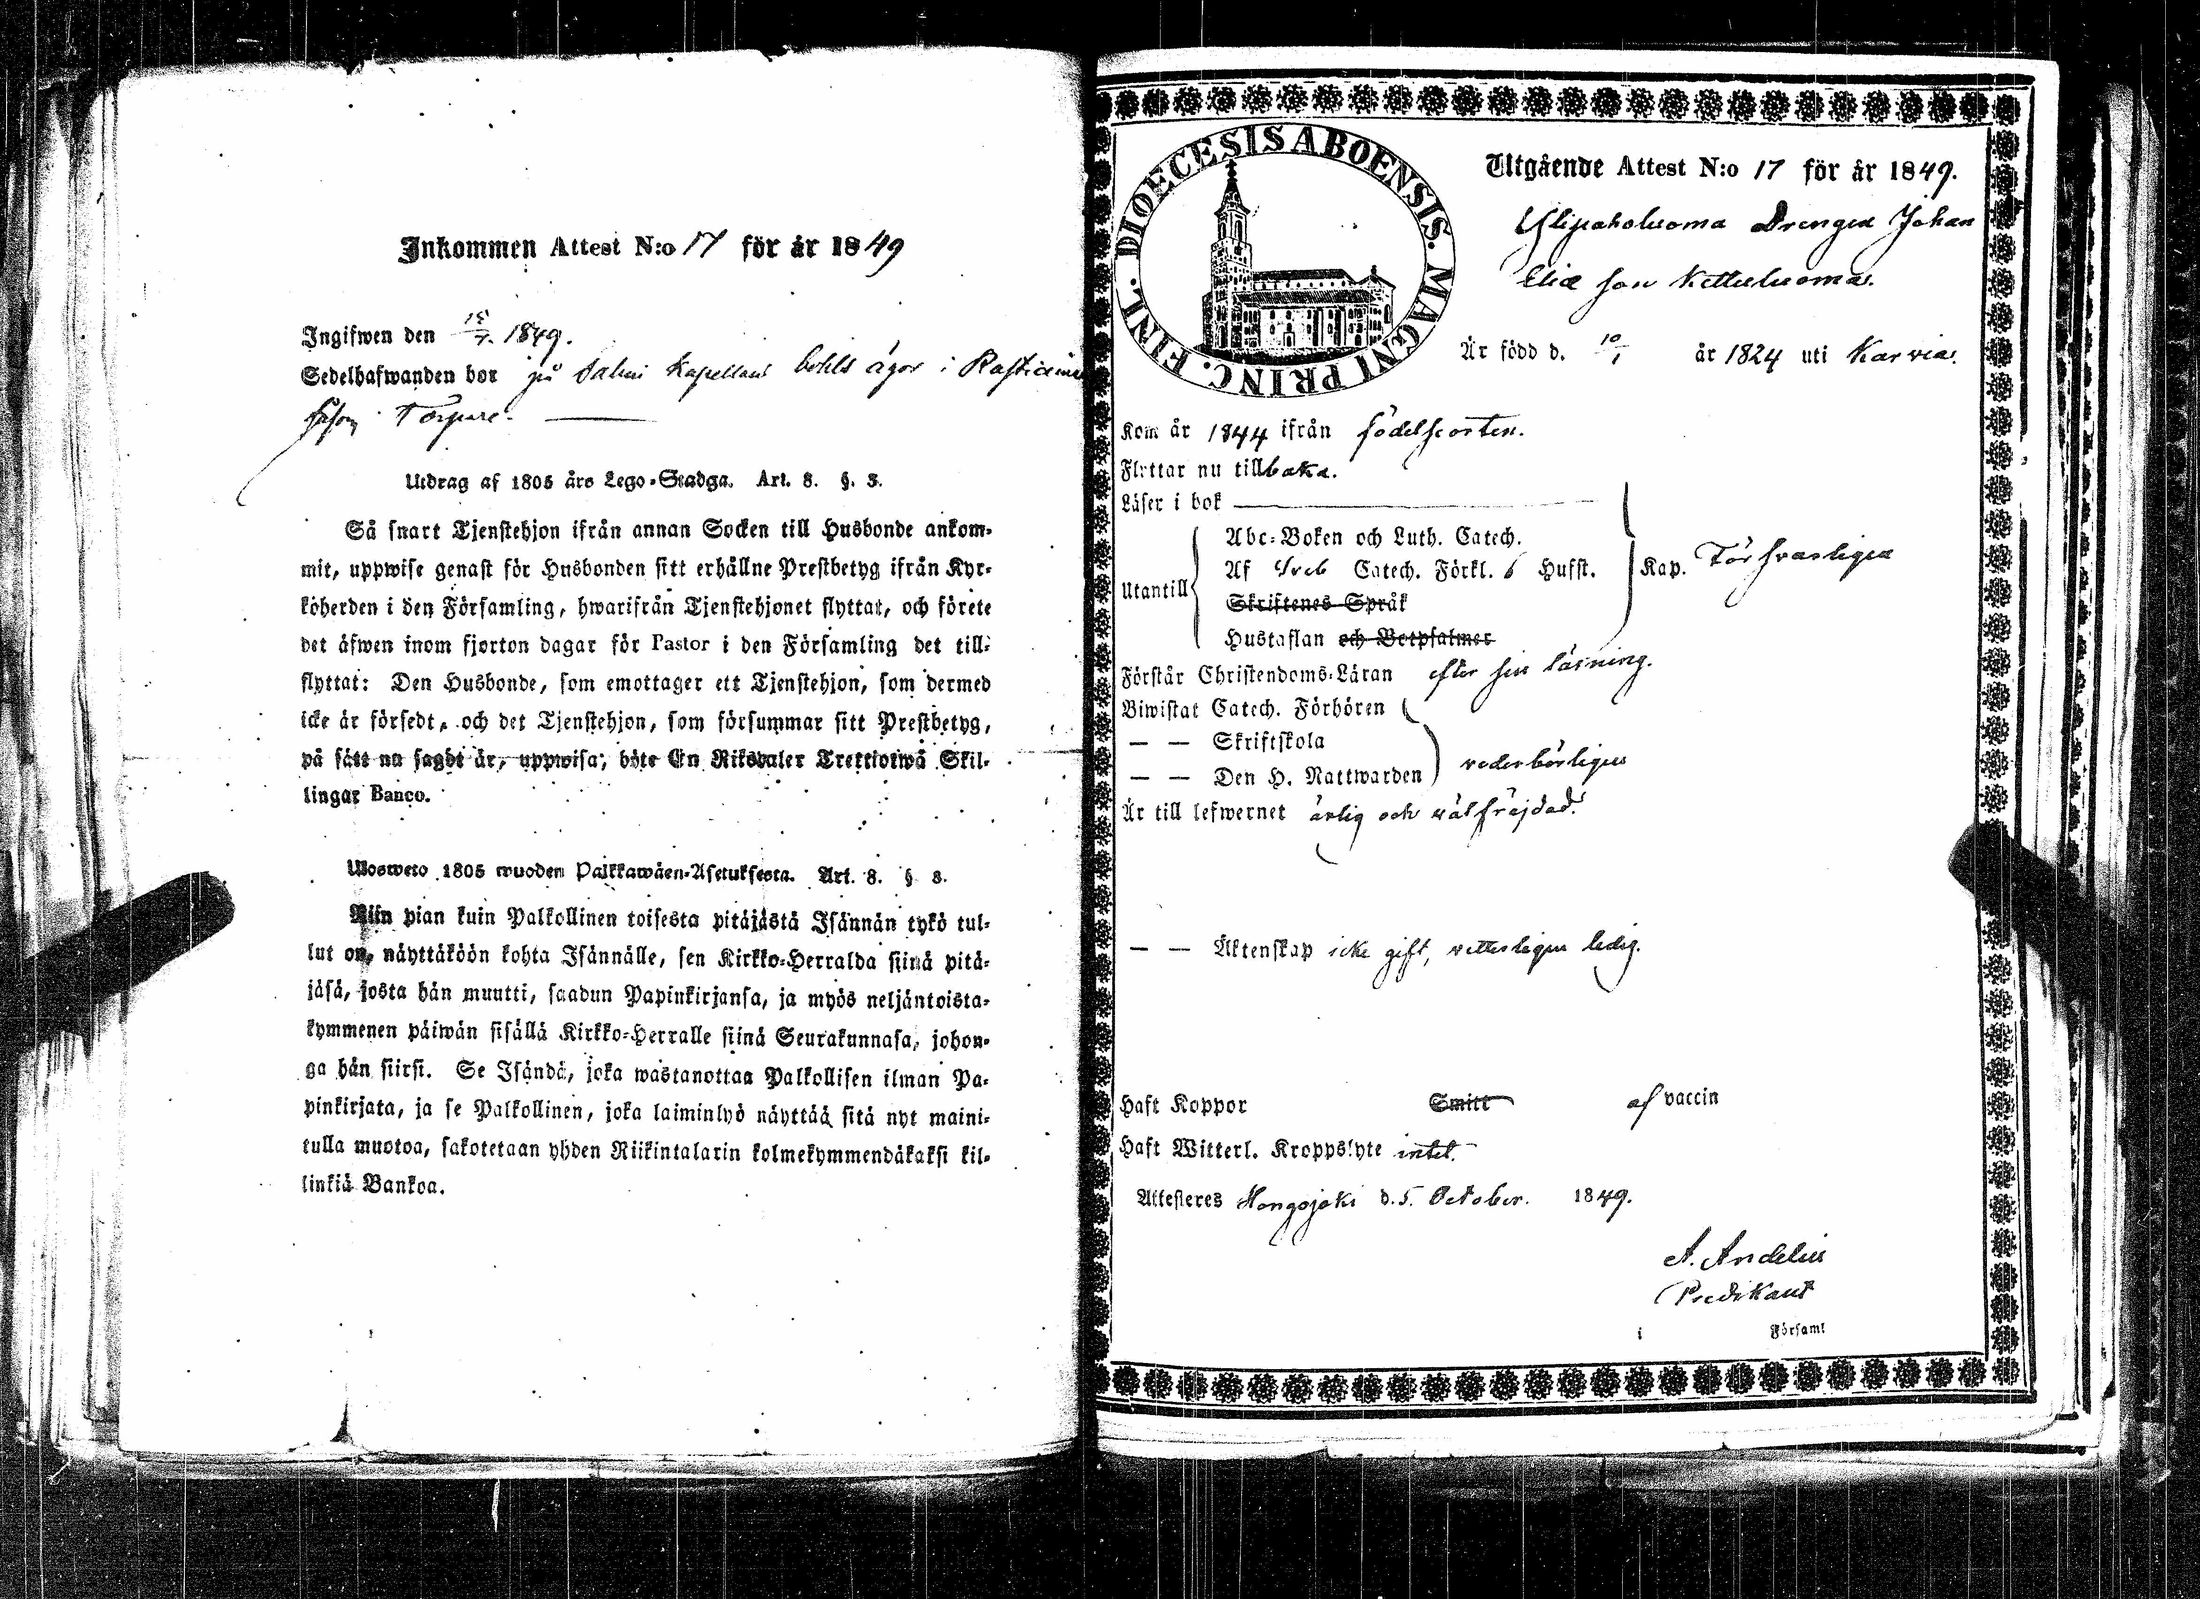 Inkommen Attest N:o 17 för år 1849
Ingifwen den 15/7. 1849.
Sedelhafwanden bor på Salmi Kapellans bohls ägor i
såsom Torpare.
Utdrag af 1805 års Lego-Stadga. Art. 8. §. 3.
Så snart Tjenstehjon ifrån annan Socken till Husbonde ankom-
mit, uppwise genast för Husbonden sitt erhållne Prestbetyg ifrån Kyr-
koherden i den Församling, hwarifrån Tjenstehjonet flyttat, och förete
det äfwen inom fjorton dagar för Pastor i den Församling det till-
flyttat: Den Husbonde, som emottager ett Tjenstehjon, som dermed
icke är försedt, och det Tjenstehjon, som försummar sitt Prestbetyg,
på sätt nu sagdt är, uppwisa, böte En Riksdaler Trettiotwå Skil-
lingar Banco.
Uloswето 1805 wuoden Palkkawäen-Asetuksesta. Art. 8. § 3.
Niin pian kuin Palkollinen toisesta pitäjästä Isännän tykö tul-
lut on, näyttäköön kohta Isännälle, sen Kirkko-Herralda siinä pitä-
jäsä, josta hän muutti, saadun Papinkirjansa, ja myös neljäntoista-
kymmenen päiwän sisällä Kirkko-Herralle siinä Seurakunnasa, johon-
ga hän siirsi. Se Isändä, joka wastanottaa Palkollisen ilman Pa-
pinkirjata, ja se Palkollinen, joka laiminlyö näyttää sitä nyt maini-
tulla muotoa, sakotetaan yhden Riikintalarin kolmekymmendäkaksi kil-
linkiä Bankoa.
DIOECESIS ABOENSIS. MAGNI PRINC. FINL.
Utgående Attest N:o 17 för år 1849.
Ylipaholuoma Drengen Johan
Eliæ son Ketteluoma.
Är född d. 10/1 år 1824 uti Karvia.
Kom år 1844 ifrån födelseorten.
Flyttar nu tillbaka.
Läser i bok
Utantill
Abc-Boken och Luth. Catech.
Af Sveb Catech. Förkl. 6 Hufst.
Skriftenes Språk
Hustaflan och Botpsalmer
Kap. Försvarligen
Förstår Christendoms-Läran efter sin läsning.
Biwistat Catech. Förhören
— — Skriftskola
— — Den H. Nattwarden
vederbörligen
Är till lefwernet ärlig och välfräjdad.
— — Äktenskap icke gift, vetterligen ledig.
Haft Koppor Smitt af vaccin
Haft Witterl. Kroppslyte intet.
Attesteres Hongojoki d. 5. October. 1849.
A. Andelin
Predikant
i Församl